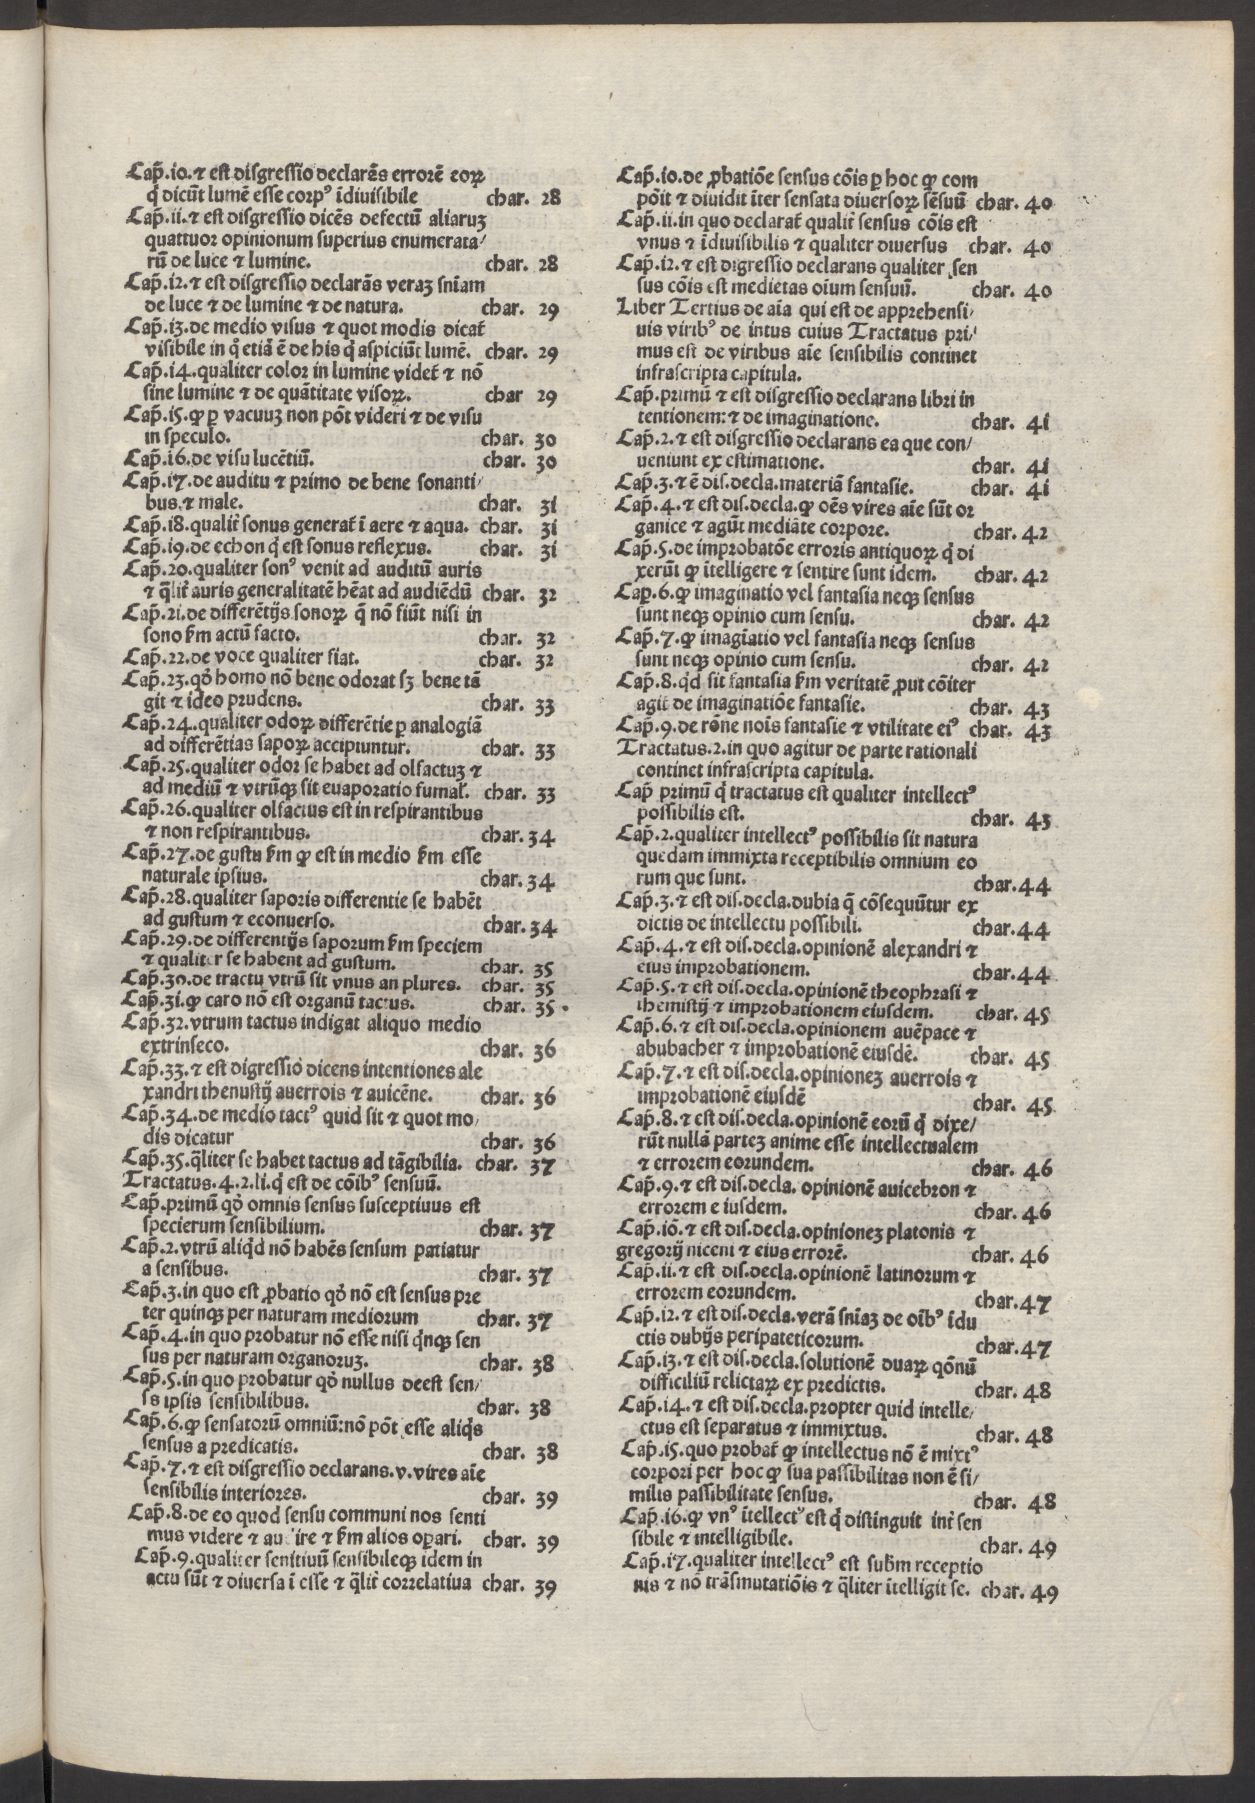 Cap̃.io.⁊ est disgressio declarẽs errorẽ eoꝝ
q̇ dicũt lumẽ esse corpꝰ ĩdiuisibile char. 28
Cap̃.ii.⁊ est disgressio dicẽs defectũ aliaruꝫ
quattuor opinionum superius enumerata/
rũ de luce ⁊ lumine. char. 28
Cap̃.i2.⁊ est disgressio declarãs veraꝫ sñiam
de luce ⁊ de lumine ⁊ de natura. char. 29
Cap̃.i3.de medio visus ⁊ quot modis dicat̃
visibile in q̇ etiã ẽ de his q̇ aspiciũt lumẽ. char. 29
Cap̃.i4.qualiter color in lumine videt̃ ⁊ nõ
sine lumine ⁊ de quãtitate visoꝝ. char 29
Cap̃.i5.ꝙ ꝑ vacuuꝫ non põt videri ⁊ de visu
in speculo. char. 30
Cap̃.i6.de visu lucẽtiũ. char. 30
Cap̃.i7.de auditu ⁊ primo de bene sonanti/
bus.⁊ male. char. 3i
Cap̃.i8.qualit̃ sonus generat̃ ĩ aere ⁊ aqua. char. 3i
Cap̃.i9.de echon q̇ est sonus reflexus. char. 3i
Cap̃.20.qualiter sonꝰ venit ad auditũ auris
⁊ q̃lit̃ auris generalitatẽ hẽat ad audiẽdũ char. 32
Cap̃.2i.de differẽtijs sonoꝝ q̃ nõ fiũt nisi in
sono ẜm actũ facto. char. 32
Cap̃.22.de voce qualiter fiat. char. 32
Cap̃.23.qȯ homo nõ bene odorat sꝫ bene tã
git ⁊ ideo prudens. char. 33
Cap̃.24.qualiter odoꝝ differẽtie ꝑ analogiã
ad differẽtias sapoꝝ accipiuntur. char. 33
Cap̃.25.qualiter odor se habet ad olfactuꝫ ⁊
ad mediũ ⁊ vtrũqꝫ sit euaporatio fumal̃. char. 33
Cap̃.26.qualiter olfactus est in respirantibus
⁊ non respirantibus. char. 34
Cap̃.27.de gustu ẜm ꝙ est in medio ẜm esse
naturale ipsius. char. 34
Cap̃.28.qualiter saporis differentie se habẽt
ad gustum ⁊ econuerso. char. 34
Cap̃.29.de differentijs saporum ẜm speciem
⁊ qualiter se habent ad gustum. char. 35
Cap̃.30.de tractu vtrũ sit vnus an plures. char. 35
Cap̃.3i.ꝙ caro nõ est organũ tactus. char. 35
Cap̃.32.vtrum tactus indigat aliquo medio
extrinseco. char. 36
Cap̃.33.⁊ est digressio dicens intentiones ale
xandri thenustij auerrois ⁊ auicẽne. char. 36
Cap̃.34.de medio tactꝰ quid sit ⁊ quot mo/
dis dicatur char. 36
Cap̃.35.q̃liter se habet tactus ad tãgibilia. char. 37
Tractatus.4.2.li.q̇ est de cõibꝰ sensuũ.
Cap̃.primũ qȯ omnis sensus susceptiuus est
specierum sensibilium. char. 37
Cap̃.2.vtrũ aliq̇d nõ habẽs sensum patiatur
a sensibus. char. 37
Cap̃.3.in quo est ꝓbatio qȯ nõ est sensus pre
ter quinqꝫ per naturam mediorum char. 37
Cap̃.4.in quo probatur nõ esse nisi q̇nqꝫ sen
sus per naturam organoruꝫ. char. 38
Cap̃.5.in quo probatur qȯ nullus deest sen/
ss ipsis sensibilibus. char. 38
Cap̃.6.ꝙ sensatorũ omniũ:nõ põt esse aliq̇s
sensus a predicatis. char. 38
Cap̃.7.⁊ est disgressio declarans.v.vires aĩe
sensibilis interiores. char. 39
Cap̃.8.de eo quod sensu communi nos senti
mus videre ⁊ au ire ⁊ ẜm alios oꝑari. char. 39
Cap̃.9.qualiter senitiuũ sensibileqꝫ idem in
actu sũt ⁊ diuersa ĩ esse ⁊ q̃lit̃ correlatiua char. 39
Cap̃.io.de ꝓbatiõe sensus cõis ꝑ hoc ꝙ com
põit ⁊ diuidit ĩter sensata diuersoꝝ sẽsuũ char. 40
Cap̃.ii.in quo declarat̃ qualit̃ sensus cõis est
vnus ⁊ ĩdiuisibilis ⁊ qualiter diuersus char. 40
Cap̃.i2.⁊ est digressio declarans qualiter sen
sus cõis est medietas oĩum sensuũ. char. 40
Liber Tertius de aĩa qui est de apprehensi/
uis viribꝰ de intus cuius Tractatus pri/
mus est de viribus aĩe sensibilis continet
infrascripta capitula.
Cap̃.primũ ⁊ est disgressio declarans libri in
tentionem:⁊ de imaginatione. char. 4i
Cap̃.2.⁊ est disgressio declarans ea que con/
ueniunt ex estimatione. char. 4i
Cap̃.3.⁊ ẽ dis.decla.materiã fantasie. char. 4i
Cap̃.4.⁊ est dis.decla.ꝙ oẽs vires aĩe sũt or
ganice ⁊ agũt mediãte corpore. char. 42
Cap̃.5.de improbatõe erroris antiquoꝝ q̇ di
xerũt ꝙ ĩtelligere ⁊ sentire sunt idem. char. 42
Cap.6.ꝙ imaginatio vel fantasia neqꝫ sensus
sunt neqꝫ opinio cum sensu. char. 42
Cap̃.7.ꝙ imagĩatio vel fantasia neqꝫ sensus
sunt neqꝫ opinio cum sensu. char. 42
Cap̃.8.q̇d sit fantasia ẜm veritatẽ ꝓut cõiter
agit̃ de imaginatiõe fantasie. char. 43
Cap̃.9.de rõne noĩs fantasie ⁊ vtilitate eiꝰ char. 43
Tractatus.2.in quo agitur de parte rationali
continet infrascripta capitula.
Cap̃ primũ q̇ tractatus est qualiter intellectꝰ
possibilis est. char. 43
Cap̃.2.qualiter intellectꝰ possibilis sit natura
quedam immixta receptibilis omnium eo
rum que sunt. char.44
Cap̃.3.⁊ est dis.decla.dubia q̃ cõsequũtur ex
dictis de intellectu possibili. char.44
Cap̃.4.⁊ est dis.decla.opinionẽ alexandri ⁊
eius improbationem. char.44
Cap̃.5.⁊ est dis.decla.opinionẽ theophrasi ⁊
themistij ⁊ improbationem eiusdem. char. 45
Cap̃.6.⁊ est dis.decla.opinionem auẽpace ⁊
abubacher ⁊ improbationẽ eiusdẽ. char. 45
Cap̃.7.⁊ est dis.decla.opinioneꝫ auerrois ⁊
improbationẽ eiusdẽ char. 45
Cap̃.8.⁊ est dis.decla.opinionẽ eorũ q̇ dixe/
rũt nullã parteꝫ anime esse intellectualem
⁊ errorem eorundem. char. 46
Cap̃.9.⁊ est dis.decla. opinionẽ auicebron ⁊
errorem eiusdem. char. 46
Cap̃.io.⁊ est dis.decla.opinioneꝫ platonis ⁊
gregorij niceni ⁊ eius errorẽ. char. 46
Cap̃.ii.⁊ est dis.decla.opinionẽ latinorum ⁊
errorem eorundem. char.47
Cap̃.i2.⁊ est dis.decla.verã sñiaꝫ de oĩbꝰ ĩdu
ctis dubijs peripateticorum. char.47
Cap̃.i3.⁊ est dis.decla.solutionẽ duaꝝ qõnũ
difficiliũ relictaꝝ ex predictis. char. 48
Cap̃.i4.⁊ est dis.decla.propter quid intelle/
ctus est separatus ⁊ immixtus. char. 48
Cap̃.i5.quo probat̃ ꝙ intellectus nõ ẽ mixtꝰ
corpori per hoc ꝙ sua passibilitas non ẽ si/
milis passibilitate sensus. char. 48
Cap̃.i6.ꝙ vnꝰ ĩtellectꝰ est q̇ distinguit int̃ sen
sibile ⁊ intelligibile. char. 49
Cap̃.i7.qualiter intellectꝰ est subm̃ receptio
nis ⁊ nõ trãsmutatiõis ⁊ q̃liter ĩtelligit se. char. 49